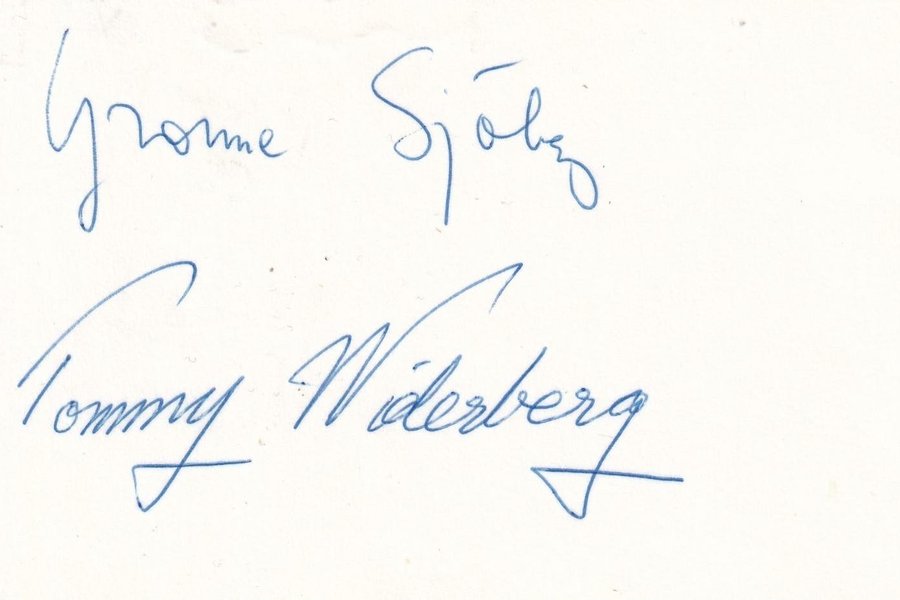 Yvonne Sjöberg
Tommy Widerberg